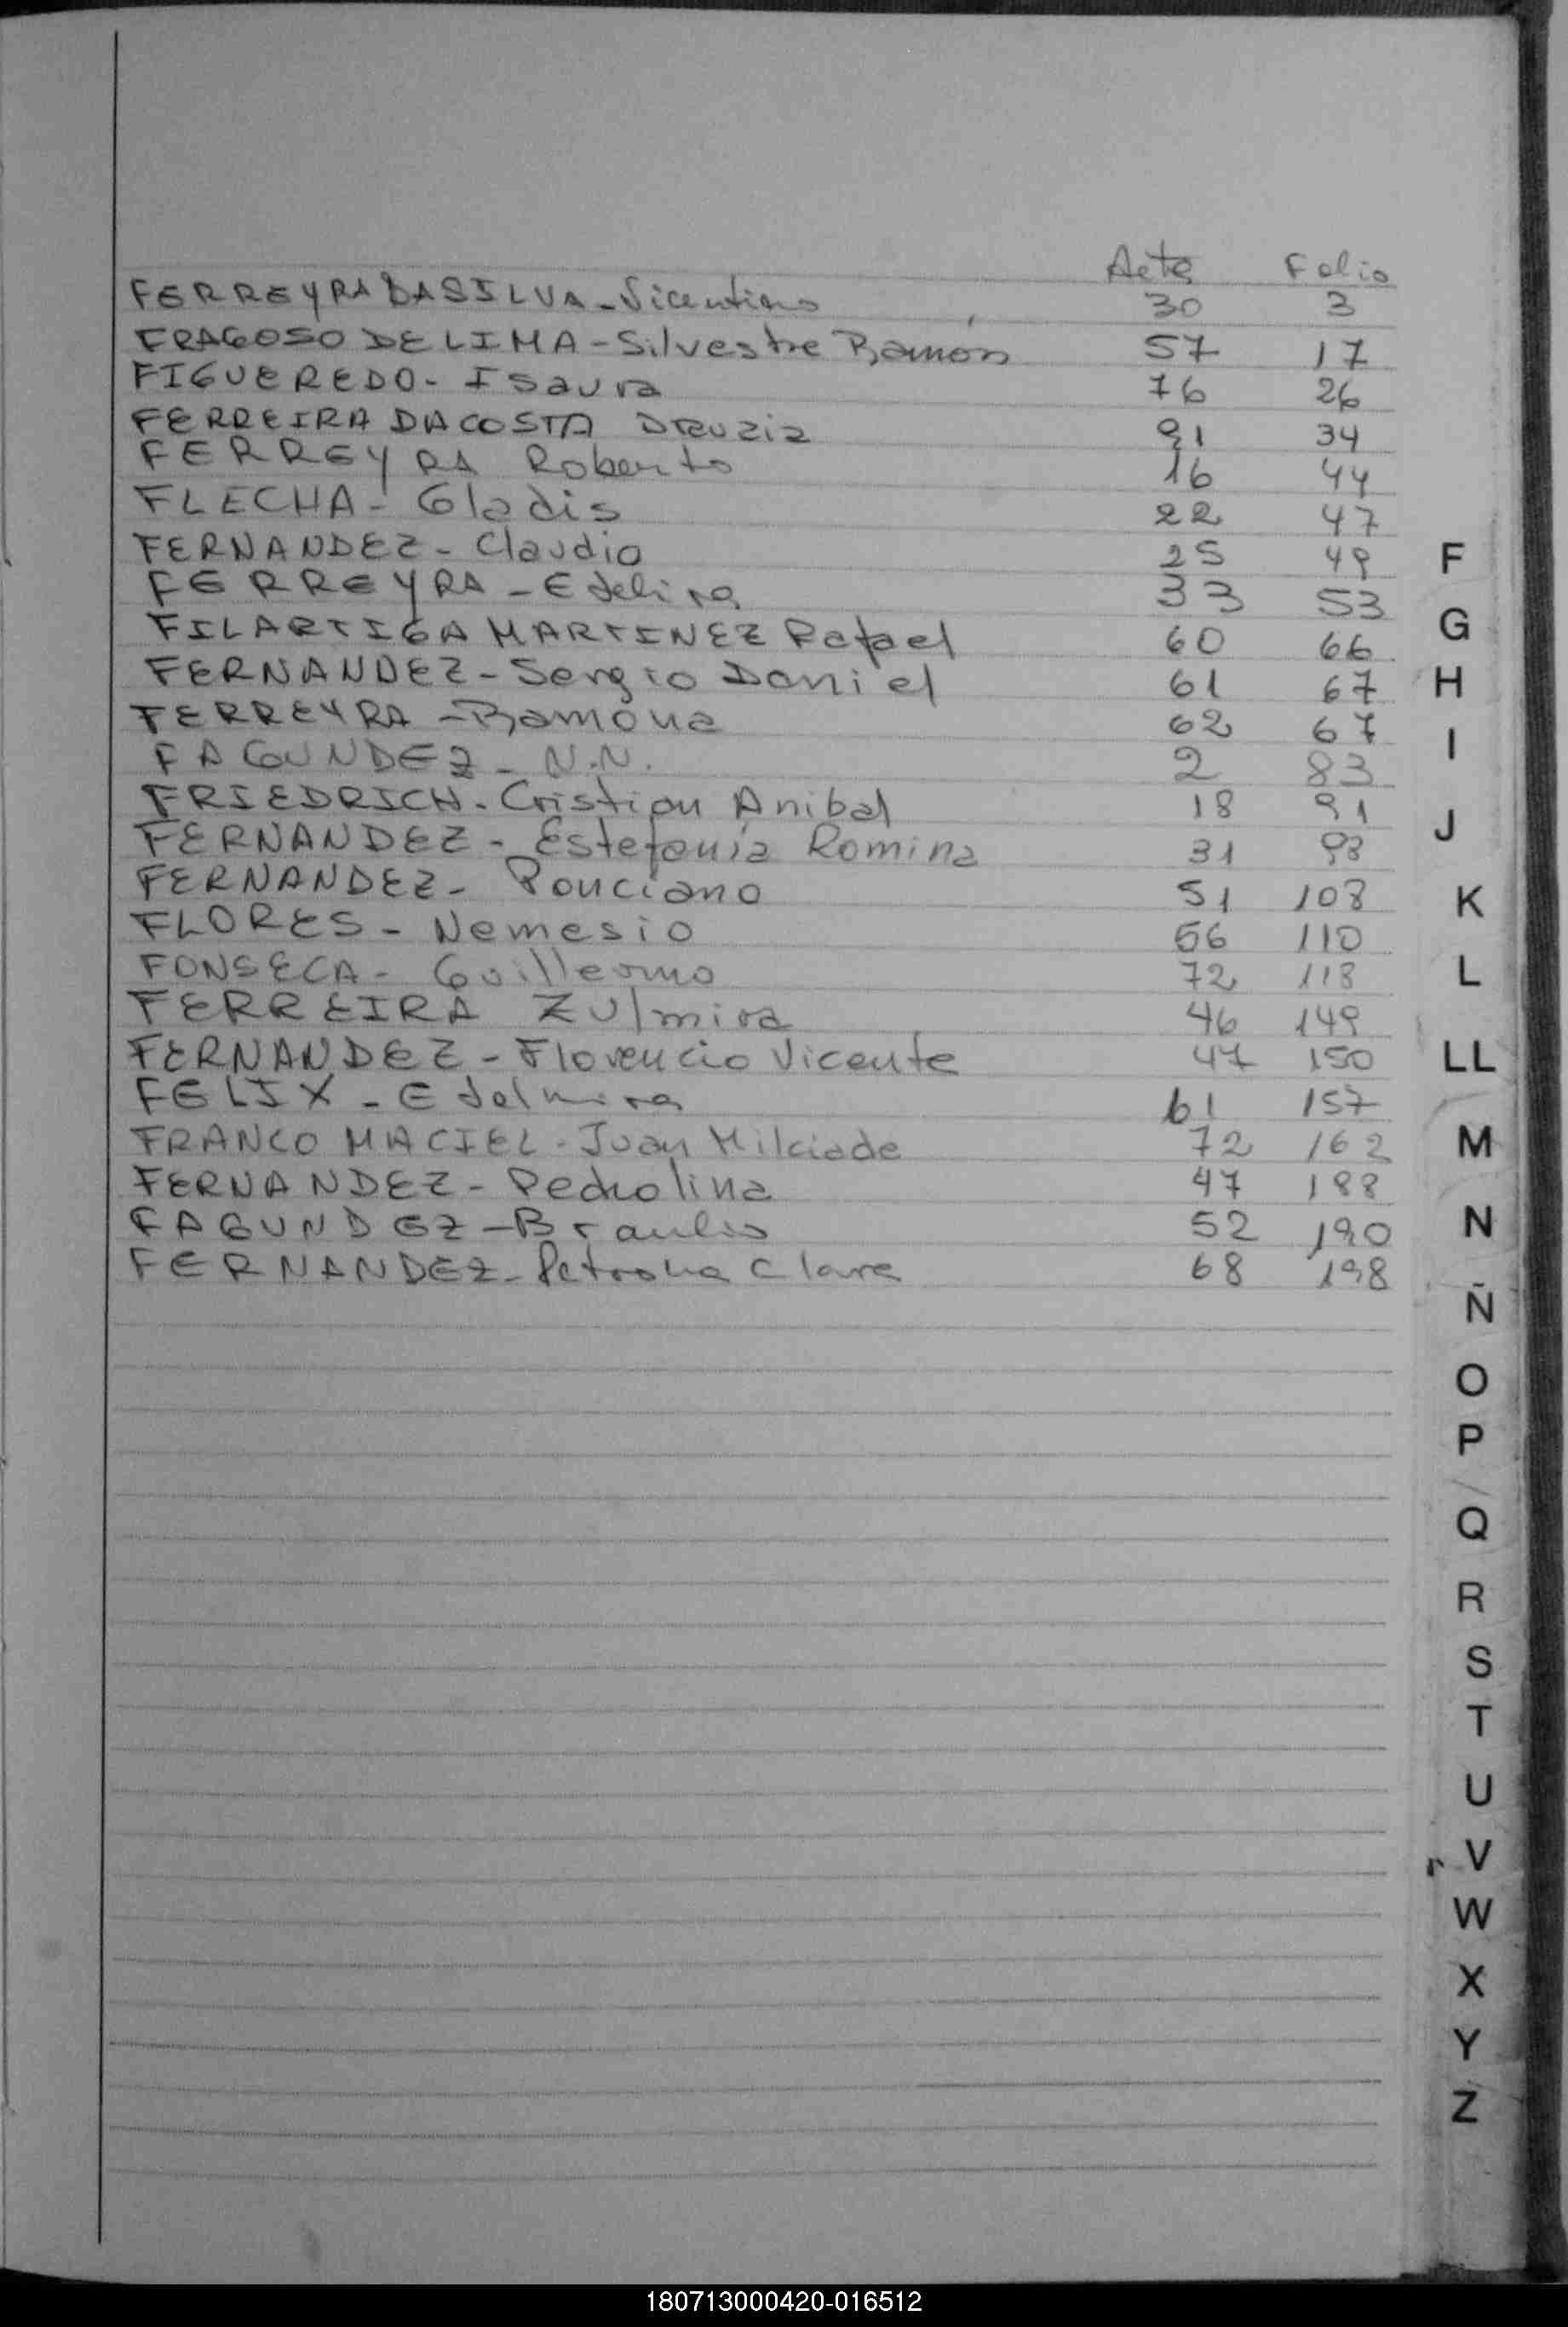 Acta Folio
FERREYRA DASILVA - Vicentino 30 3
FRAGOSO DE LIMA - Silvestre Ramón 57 17
FIGUEREDO - Isaura 76 26
FERREIRA DACOSTA Drauzia 91 34
FERREYRA Roberto 16 44
FLECHA - Gladis 22 47
FERNANDEZ - Claudio 25 49
FERREYRA - Etelina 33 53
FILARTIGA MARTINEZ Rafael 60 66
FERNANDEZ - Sergio Daniel 61 67
FERREYRA - Ramona 62 67
FAGUNDEZ - N.N. 2 83
FRIEDRICH - Cristian Anibal 18 91
FERNANDEZ - Estefanía Romina 31 98
FERNANDEZ - Ponciano 51 108
FLORES - Nemesio 56 110
FONSECA - Guillermo 72 118
FERREIRA Zulmira 46 149
FERNANDEZ - Florencio Vicente 47 150
FELIX - Edelmira 61 157
FRANCO MACIEL - Juan Milciade 72 162
FERNANDEZ - Pedrolina 47 188
FAGUNDEZ - Braulio 52 190
FERNANDEZ - Petrona Clara 68 198
F
G
H
I
J
K
L
LL
M
N
Ñ
O
P
Q
R
S
T
U
V
W
X
Y
Z
180713000420-016512